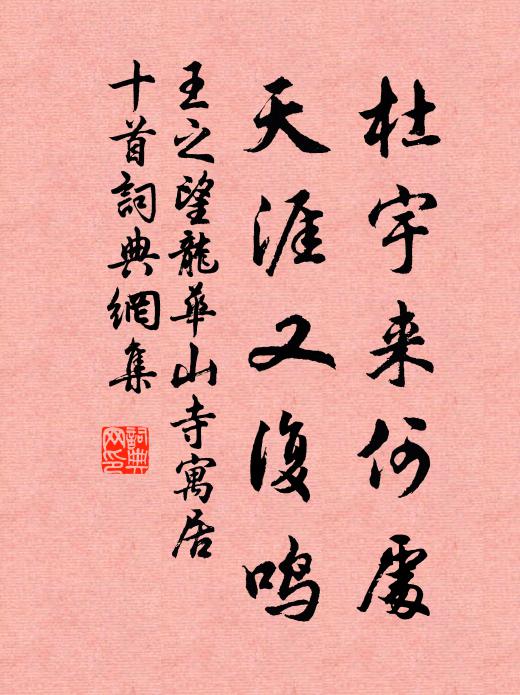 杜宇来何處
天涯又復鸣
王之望龍華山寺寓居
十首詞典網集
詞典
网印